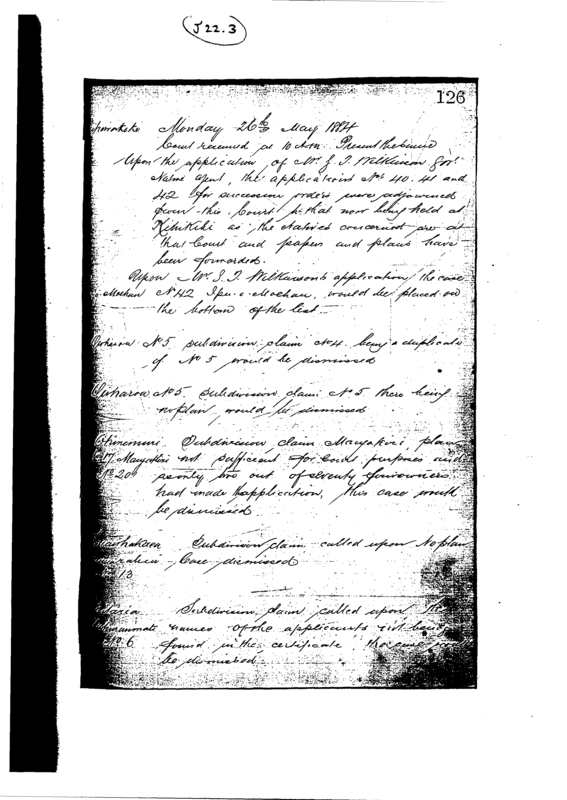 J 22.3
126
Monday 26th May 1884
Court resumed at 10 A.m. Present the same
Upon the application of Mr. G. T. Wilkinson Govt
Native Agent, the applications Nos 40. 41 and
42 for succession orders were adjourned
from this Court to that now being held at
Kihikihi as the Natives concerned are at
that Court and papers and plans have
been forwarded.
Upon Mr. G. T. Wilkinson's application the case
No 42 Ipu-o-Moehau, would be placed on
the bottom of the list
No 5 subdivision claim No 4. being a duplicate
of No 5 would be dismissed
No 5 Subdivision claim No 5, there being
no plan, would be dismissed
Ohinemuri Subdivision claim plan
not sufficient for Court purposes and
as only two out of seventy four owners
had made the application, this case would
be dismissed
Subdivision claim called upon No plan
Case dismissed
13
Subdivision claim called upon The
names of the applicants not being
No. 6 found in the certificate the case
be dismissed